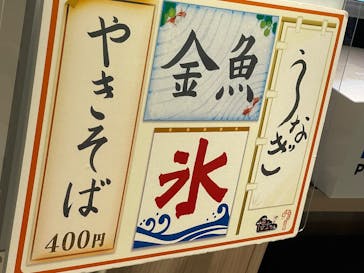 やきそば
400円
金魚
氷
うなぎ
P